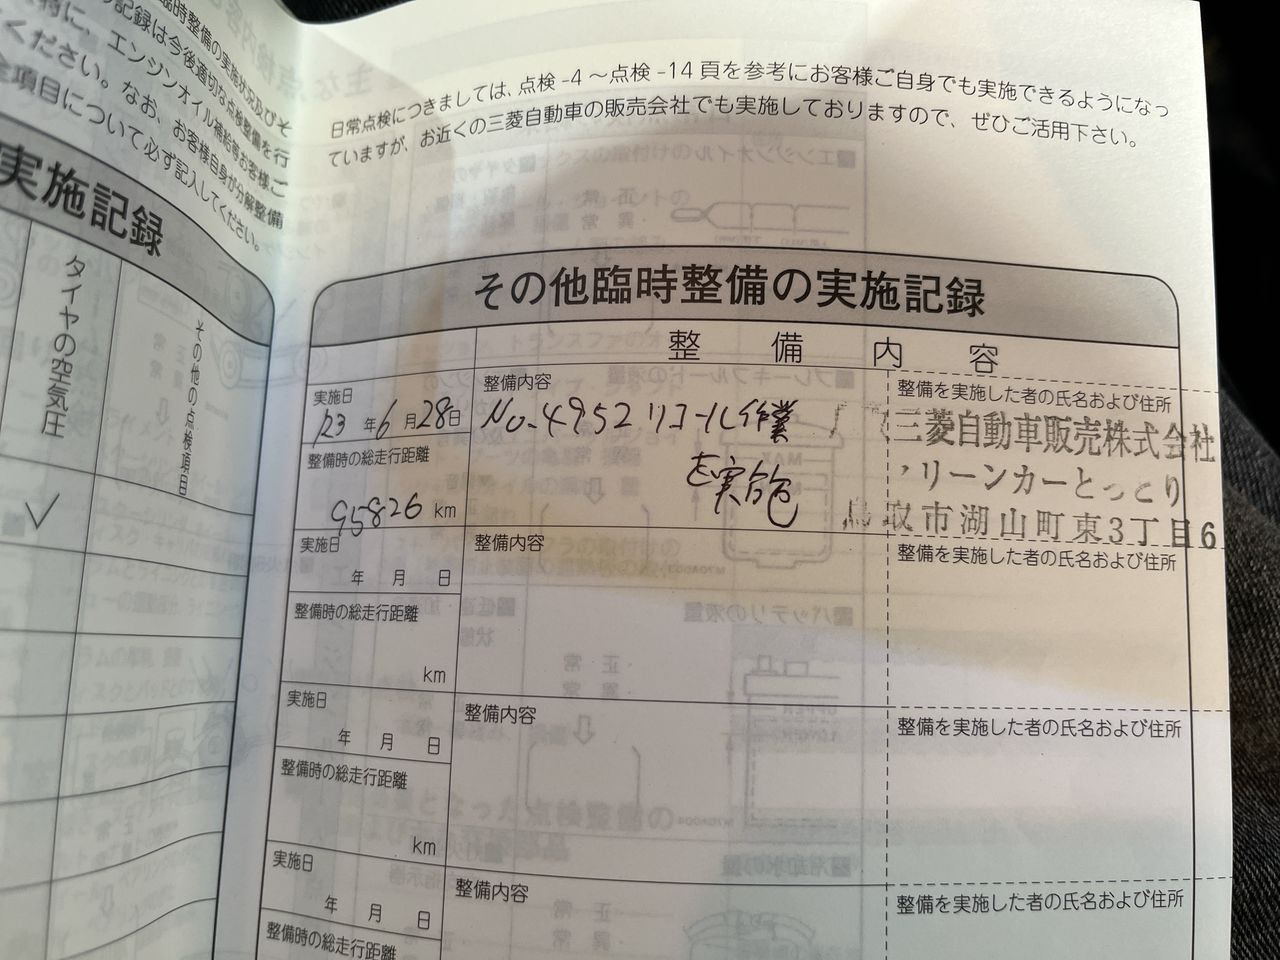 臨時整備の実施状況及びそ
記録は今後適切な点検整備を行
特に、エンジンオイル補給等お客様ご
ください。なお、お客様自身が分解整備
全項目について必ず記入してください。
実施記録
タイヤの空気圧
その他の点検項目
日常点検につきましては、点検-4〜点検-14頁を参考にお客様ご自身でも実施できるようになっ
ていますが、お近くの三菱自動車の販売会社でも実施しておりますので、ぜひご活用下さい。
その他臨時整備の実施記録
整備内容
実施日
'23年6月28日
整備時の総走行距離
95826 km
整備内容
No.4952 リコール作業
を実施
整備を実施した者の氏名および住所
三菱自動車販売株式会社
リーンカーとっとり
鳥取市湖山町東3丁目6
実施日
年 月 日
整備時の総走行距離
km
整備内容
整備を実施した者の氏名および住所
実施日
年 月 日
整備時の総走行距離
km
整備内容
整備を実施した者の氏名および住所
実施日
年 月 日
整備時の総走行距離
整備内容
整備を実施した者の氏名および住所